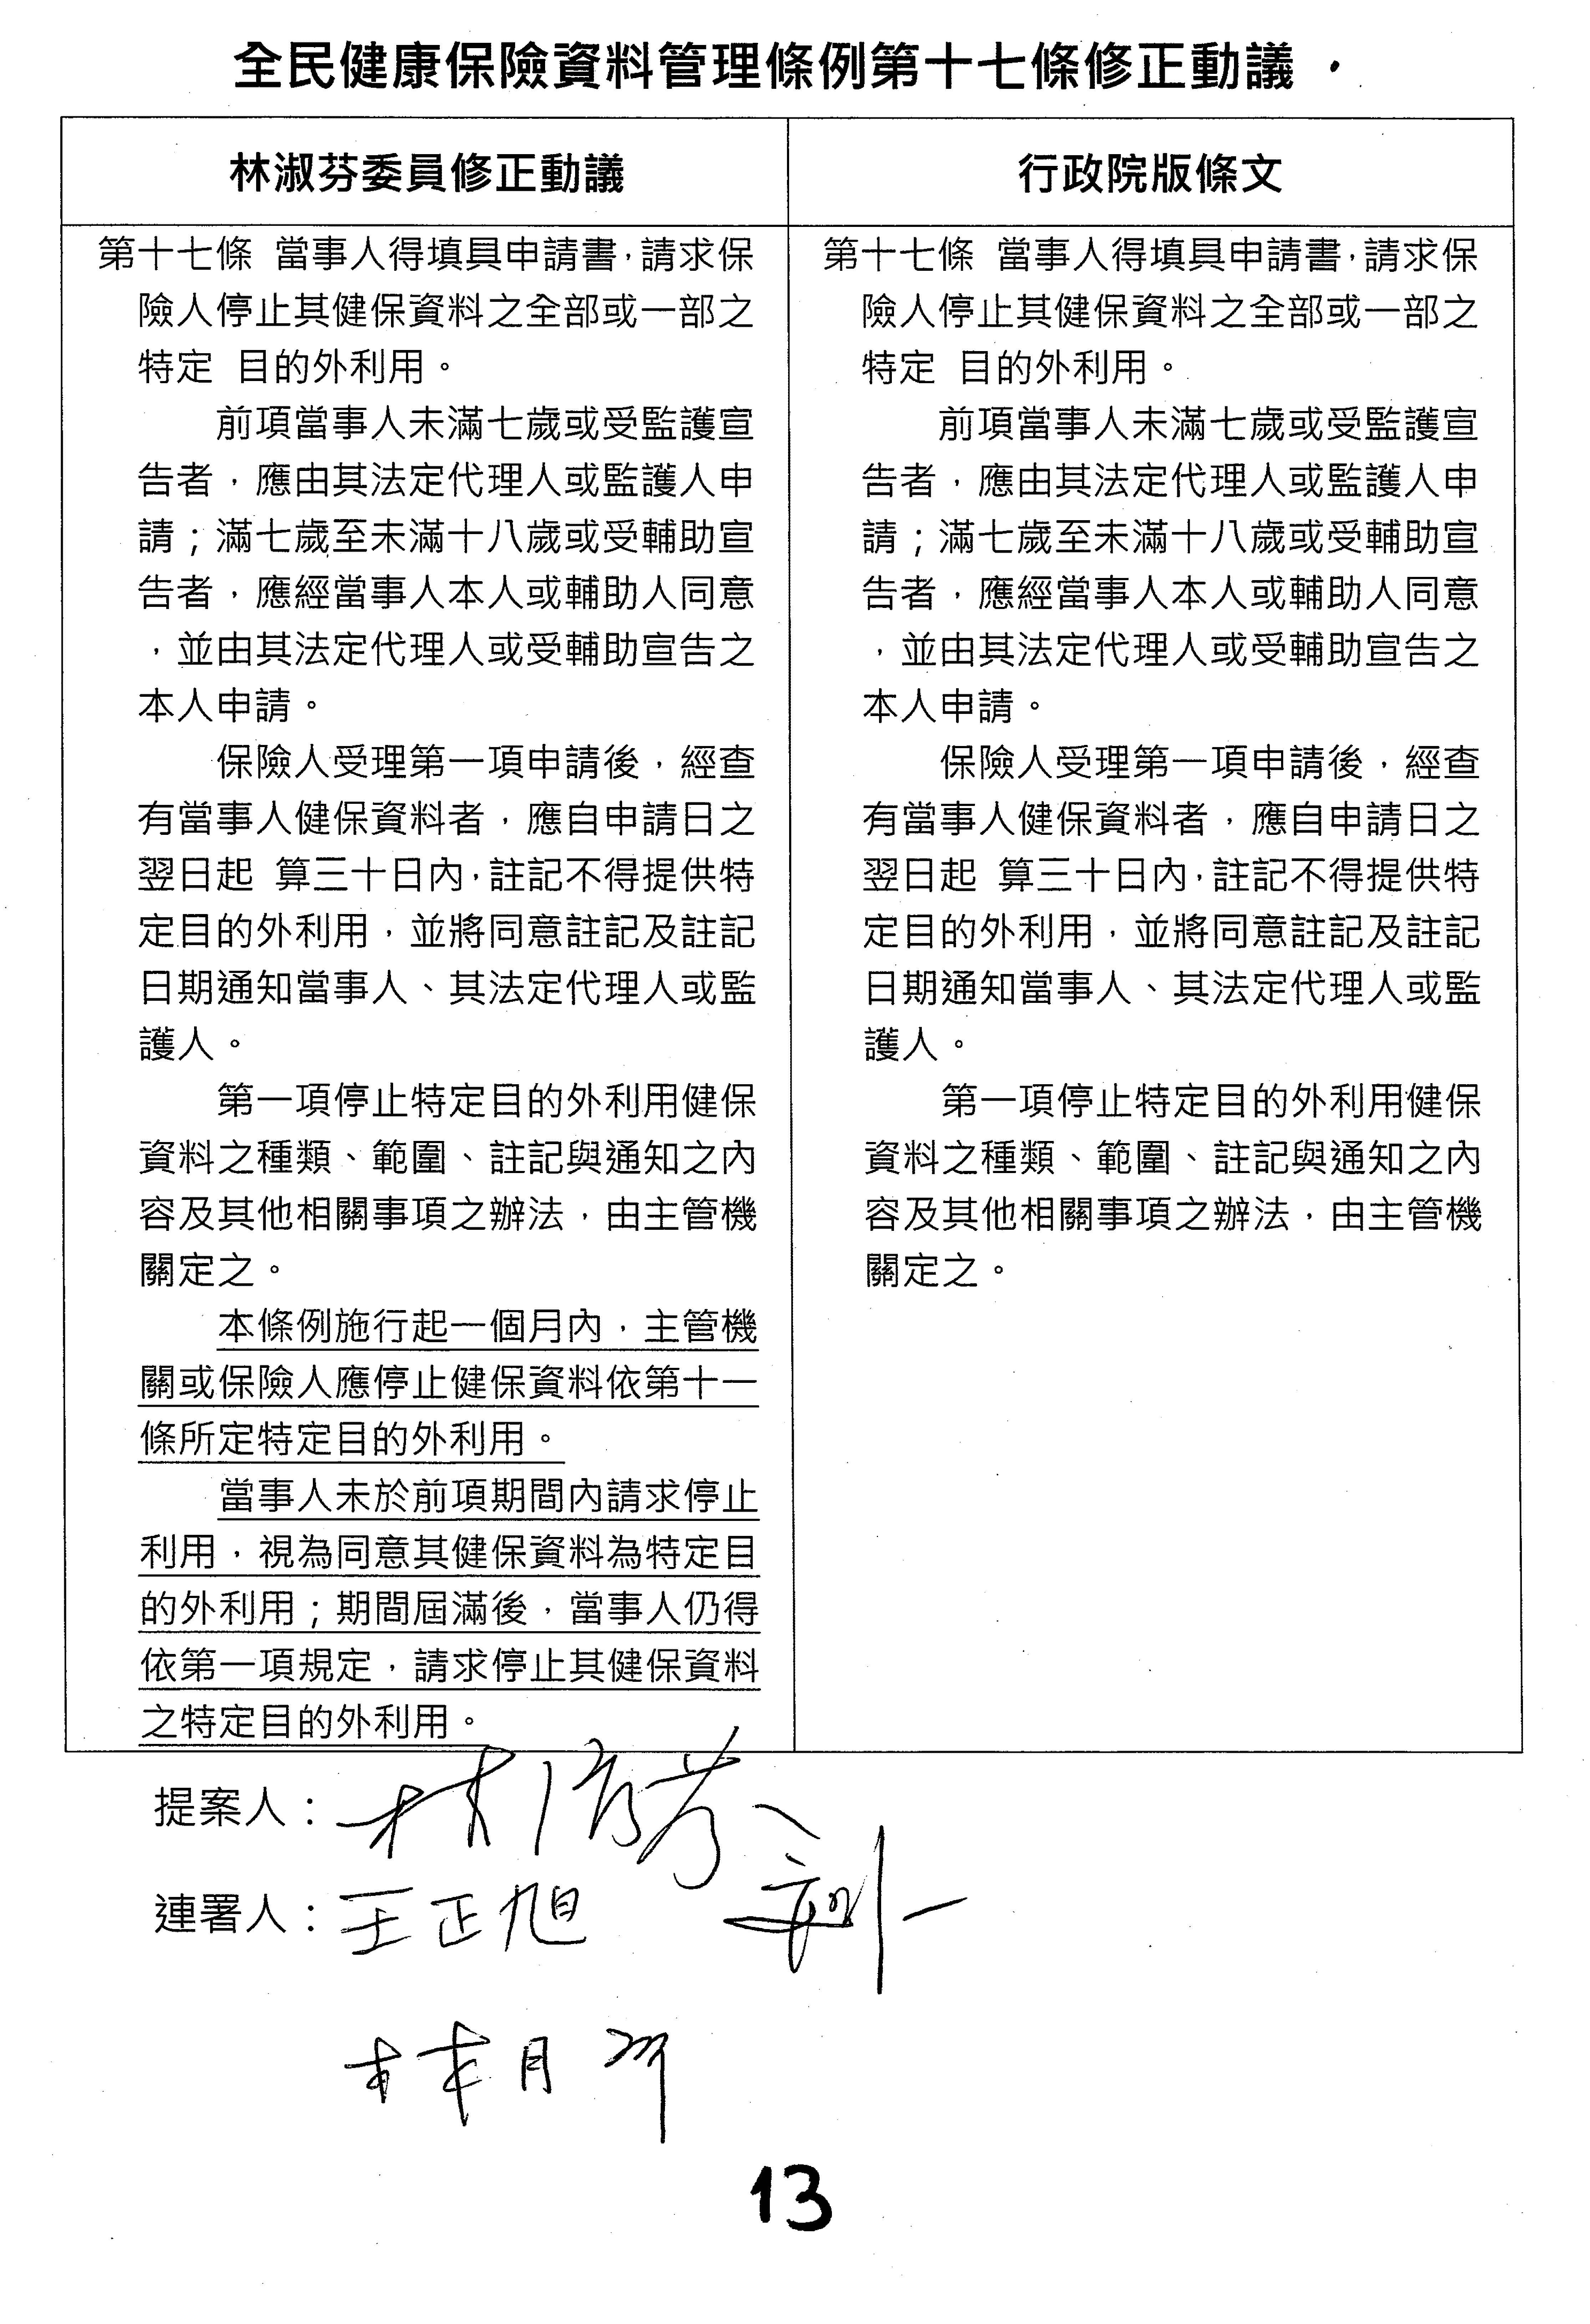 全民健康保險資料管理條例第十七條修正動議
林淑芬委員修正動議
第十七條 當事人得填具申請書，請求保
險人停止其健保資料之全部或一部之
特定 目的外利用。
前項當事人未滿七歲或受監護宣
告者，應由其法定代理人或監護人申
請；滿七歲至未滿十八歲或受輔助宣
告者，應經當事人本人或輔助人同意
，並由其法定代理人或受輔助宣告之
本人申請。
保險人受理第一項申請後，經查
有當事人健保資料者，應自申請日之
翌日起 算三十日內，註記不得提供特
定目的外利用，並將同意註記及註記
日期通知當事人、其法定代理人或監
護人。
第一項停止特定目的外利用健保
資料之種類、範圍、註記與通知之內
容及其他相關事項之辦法，由主管機
關定之。
本條例施行起一個月內，主管機
關或保險人應停止健保資料依第十一
條所定特定目的外利用。
當事人未於前項期間內請求停止
利用，視為同意其健保資料為特定目
的外利用；期間屆滿後，當事人仍得
依第一項規定，請求停止其健保資料
之特定目的外利用。
行政院版條文
第十七條 當事人得填具申請書，請求保
險人停止其健保資料之全部或一部之
特定 目的外利用。
前項當事人未滿七歲或受監護宣
告者，應由其法定代理人或監護人申
請；滿七歲至未滿十八歲或受輔助宣
告者，應經當事人本人或輔助人同意
，並由其法定代理人或受輔助宣告之
本人申請。
保險人受理第一項申請後，經查
有當事人健保資料者，應自申請日之
翌日起 算三十日內，註記不得提供特
定目的外利用，並將同意註記及註記
日期通知當事人、其法定代理人或監
護人。
第一項停止特定目的外利用健保
資料之種類、範圍、註記與通知之內
容及其他相關事項之辦法，由主管機
關定之。
提案人：林淑芬
連署人：王正旭
林月琴
13